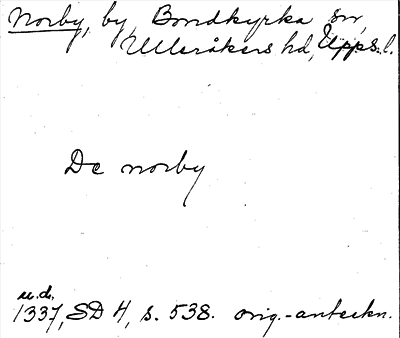 Norby, by, Bondkyrka sn,
Ulleråkers hd, Upps.l.
De norby
u.d.
1337, SD 4, s. 538. orig.-anteckn.